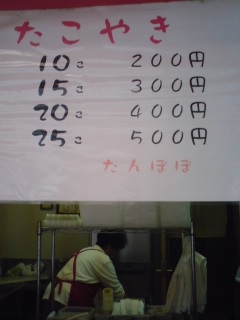 たこやき
10コ 200円
15コ 300円
20コ 400円
25コ 500円
たんぽぽ